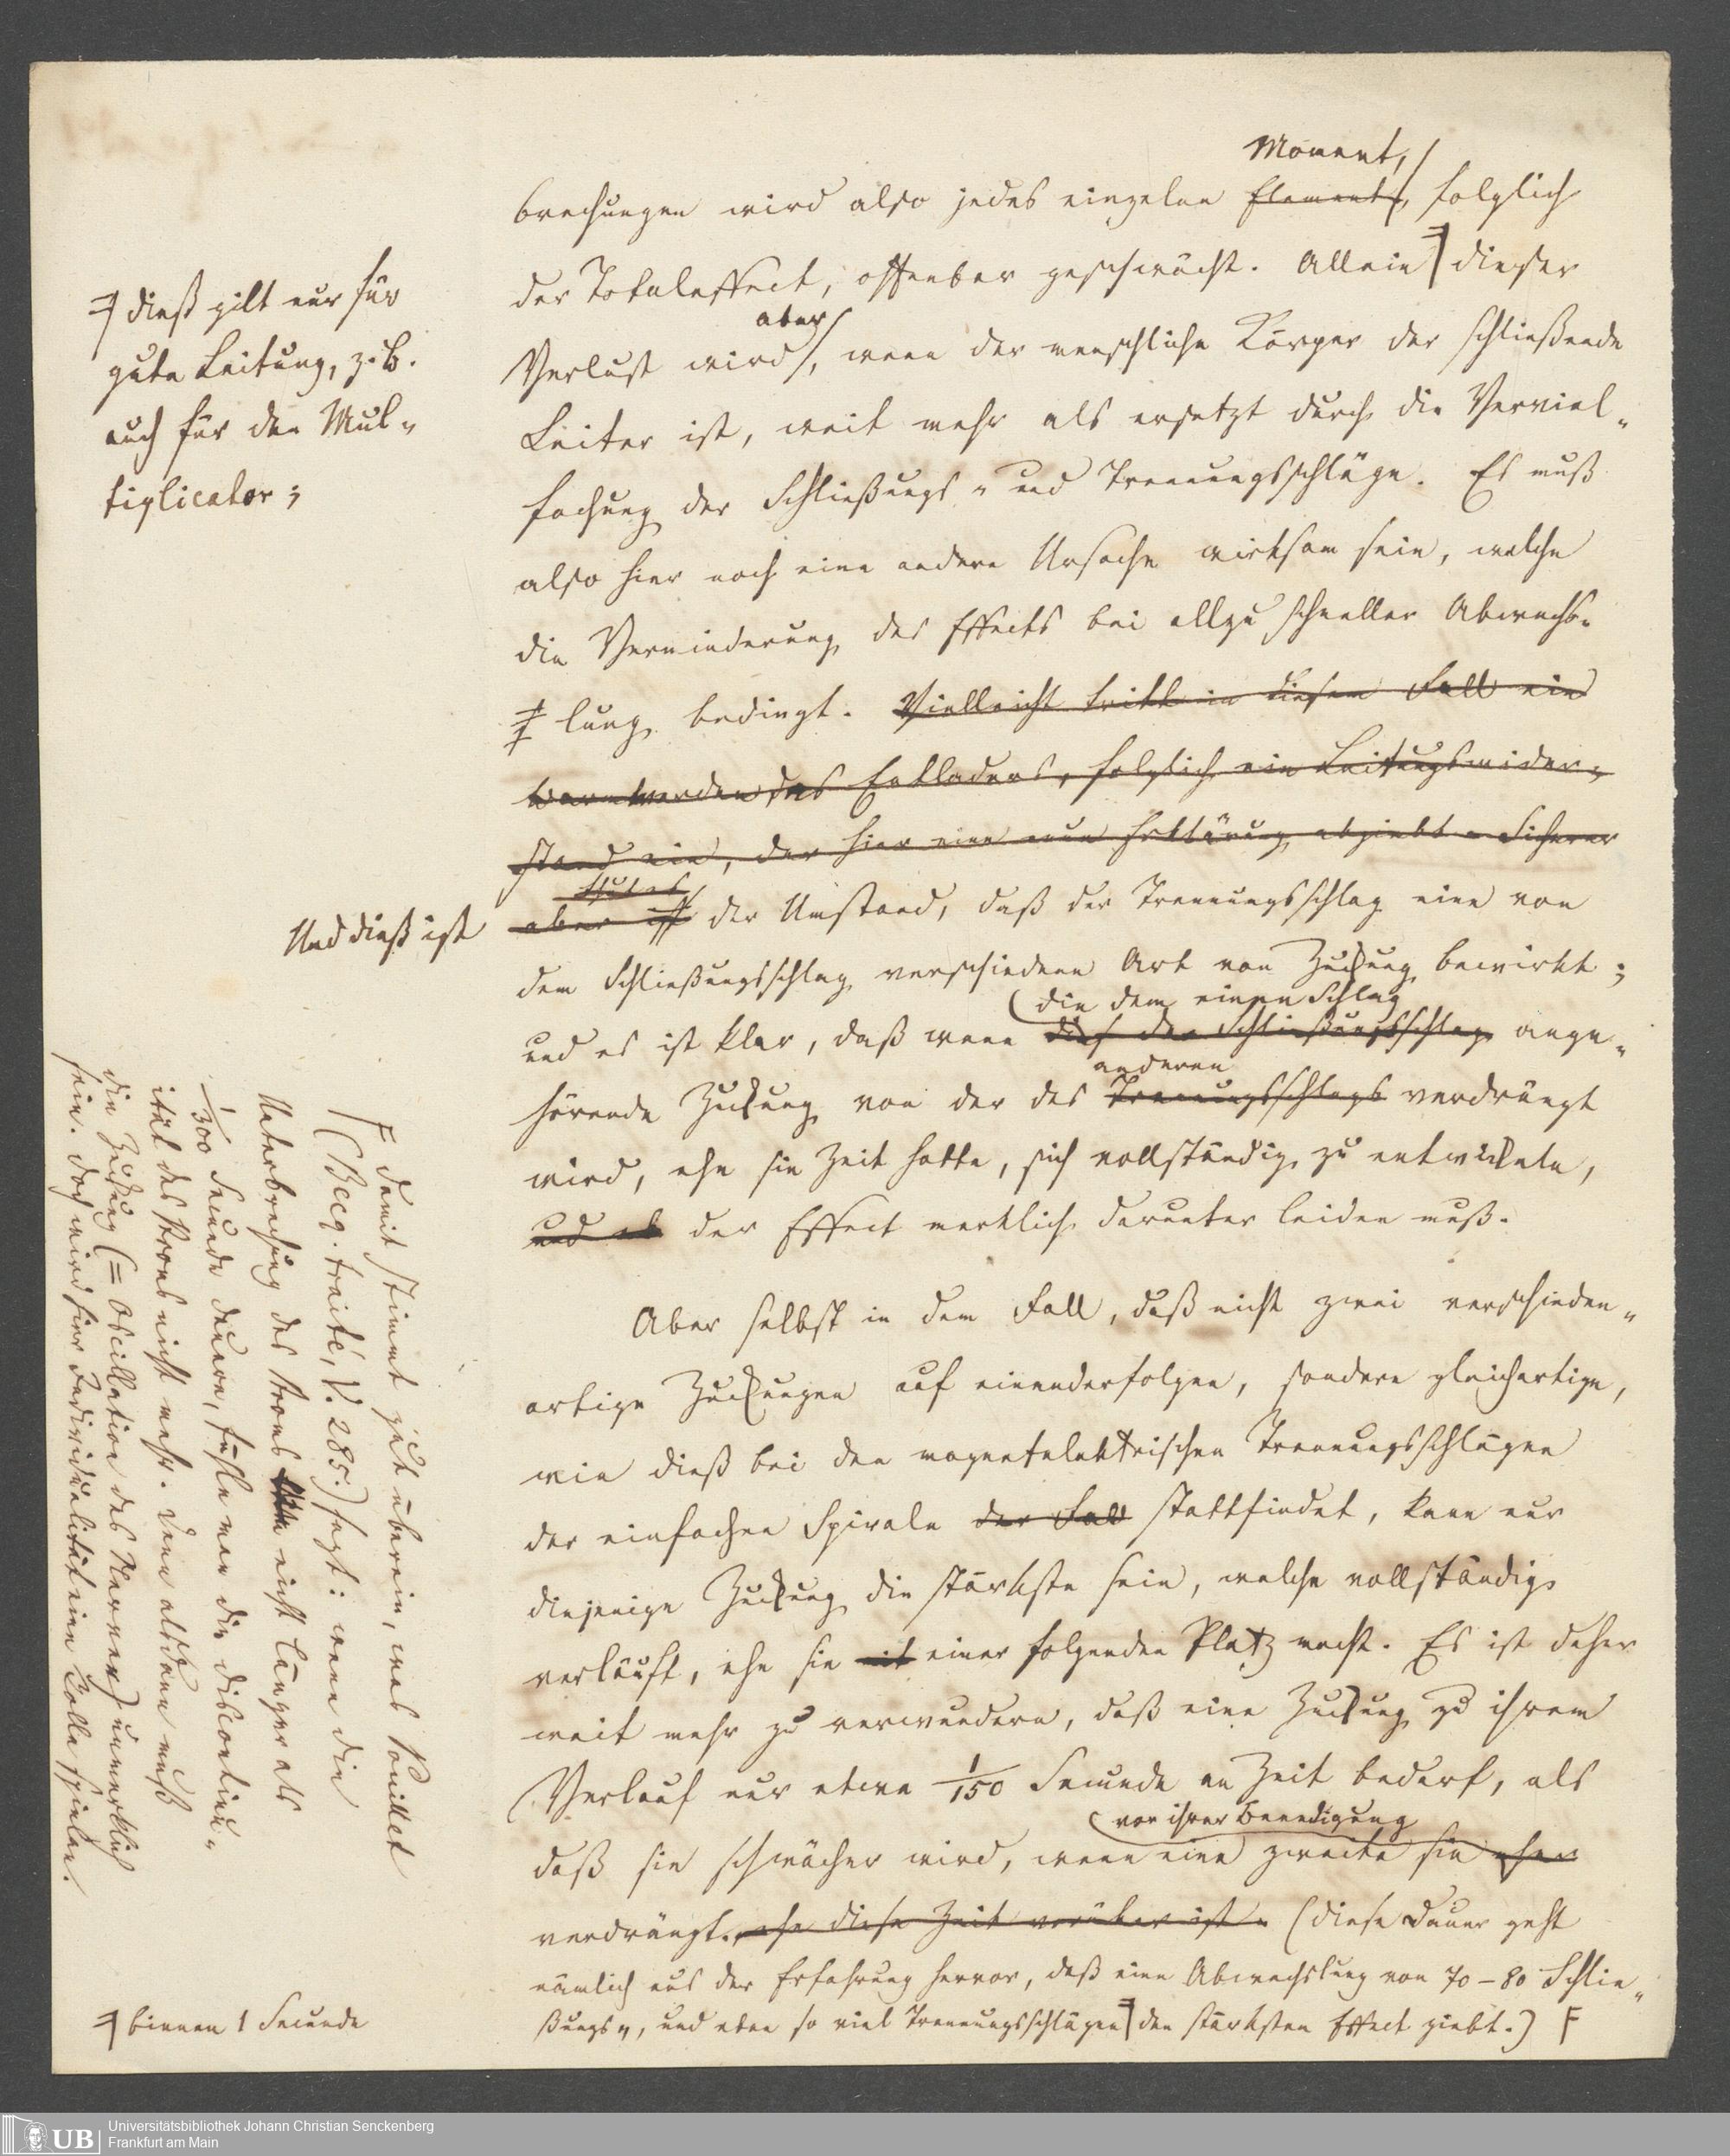 Moment,
brechungen wird also jedes einzelne Element, folglich
der Totaleffect, offenbar geschwächt. Allein dieser
aber
Verlust wird, wenn der menschliche Körper der schließende
Leiter ist, weit mehr als ersetzt durch die Verviel-
fachung der Schließungs- und Trennungsschläge. Es muß
also hier noch eine andere Ursache wirksam sein, welche
die Verminderung des Effects bei allzu schneller Abwechs-
lung bedingt. Vielleicht tritt in diesem Fall ein
Warmwerden des Entladers, folglich ein Leitungswider-
stand ein, der hier eine neue Erklärung abgiebt. Sicherer
aber ist der Umstand, daß der Trennungsschlag eine von
dem Schließungsschlag verschiedene Art von Zuckung bewirkt;
die dem einen Schlag
und es ist klar, daß wenn die dem Schließungsschlag ange-
anderen
hörende Zuckung von der des Trennungsschlags verdrängt
wird, ehe sie Zeit hatte, sich vollständig zu entwickeln,
und der Effect merklich darunter leiden muß.
Aber selbst in dem Fall, daß nicht zwei verschieden-
artige Zuckungen auf einanderfolgen, sondern gleichartige,
wie dieß bei den magnetelektrischen Trennungsschlägen
der einfachen Spirale der Fall stattfindet, kann nur
diejenige Zuckung die stärkste sein, welche vollständig
verläuft, ehe sie mit einer folgenden Platz macht. Es ist daher
weit mehr zu verwundern, daß eine Zuckung zu ihrem
Verlauf nur etwa 1/150 Secunde an Zeit bedarf, als
vor ihrer Beendigung
daß sie schwächer wird, wenn eine zweite sie eher
verdrängt, ehe diese Zeit vorüber ist. (diese Dauer geht
nämlich aus der Erfahrung hervor, daß eine Abwechslung von 70-80 Schlie-
ßungs-, und eben so viel Trennungsschlägen den stärksten Effect giebt.) F
dieß gilt nur für
gute Leitung, z.B.
auch für den Mul-
tiplicator;
Und dieß ist
F damit stimmt gut überein, was Pouillet
(Becq. traité, V. 285.) sagt: wenn die
Unterbrechung des Stroms nicht länger als
1/300 Secunde dauere, fühle man die Discontinu-
ität des Stroms nicht mehr. Denn alsdann muß
die Zuckung (= Oscillation des Nerven) unmerklich
sein. Doch wird hier Individualität eine Rolle spielen.
binnen 1 Secunde
UB Universitätsbibliothek Johann Christian Senckenberg
Frankfurt am Main